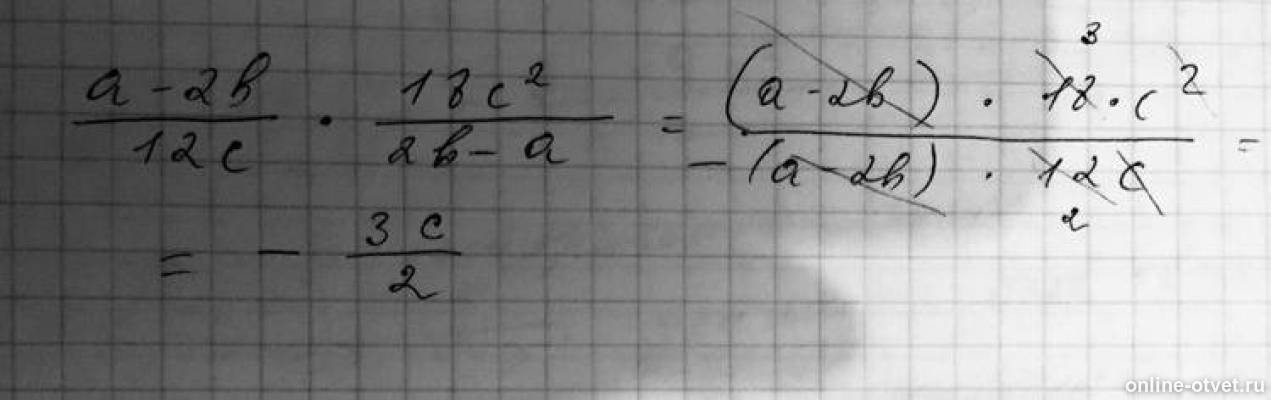 (a - 2b)/(12c) · (18c²)/(2b - a) = ((a - 2b) · 18 · c²)/(-(a - 2b) · 12c) =
3
2
= - (3c)/2
online-otvet.ru